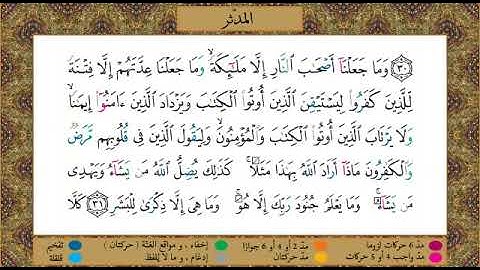 المدثر
٣٠ وَمَا جَعَلْنَآ أَصْحَٰبَ ٱلنَّارِ إِلَّا مَلَٰٓئِكَةً ۙ وَمَا جَعَلْنَا عِدَّتَهُمْ إِلَّا فِتْنَةً
لِّلَّذِينَ كَفَرُوا۟ لِيَسْتَيْقِنَ ٱلَّذِينَ أُوتُوا۟ ٱلْكِتَٰبَ وَيَزْدَادَ ٱلَّذِينَ ءَامَنُوٓا۟ إِيمَٰنًا ۙ
وَلَا يَرْتَابَ ٱلَّذِينَ أُوتُوا۟ ٱلْكِتَٰبَ وَٱلْمُؤْمِنُونَ ۙ وَلِيَقُولَ ٱلَّذِينَ فِى قُلُوبِهِم مَّرَضٌ
وَٱلْكَٰفِرُونَ مَاذَآ أَرَادَ ٱللَّهُ بِهَٰذَا مَثَلًا ۚ كَذَٰلِكَ يُضِلُّ ٱللَّهُ مَن يَشَآءُ وَيَهْدِى
مَن يَشَآءُ ۚ وَمَا يَعْلَمُ جُنُودَ رَبِّكَ إِلَّا هُوَ ۚ وَمَا هِىَ إِلَّا ذِكْرَىٰ لِلْبَشَرِ ٣١ كَلَّا
مدّ ٦ حركات لزوما مدّ ٢ أو ٤ أو ٦ جوازا إخفاء، ومواقع الغنّة (حركتان) تفخيم
مدّ واجب ٤ أو ٥ حركات مدّ حركتان إدغام، وما لا يُلفظ قلقلة